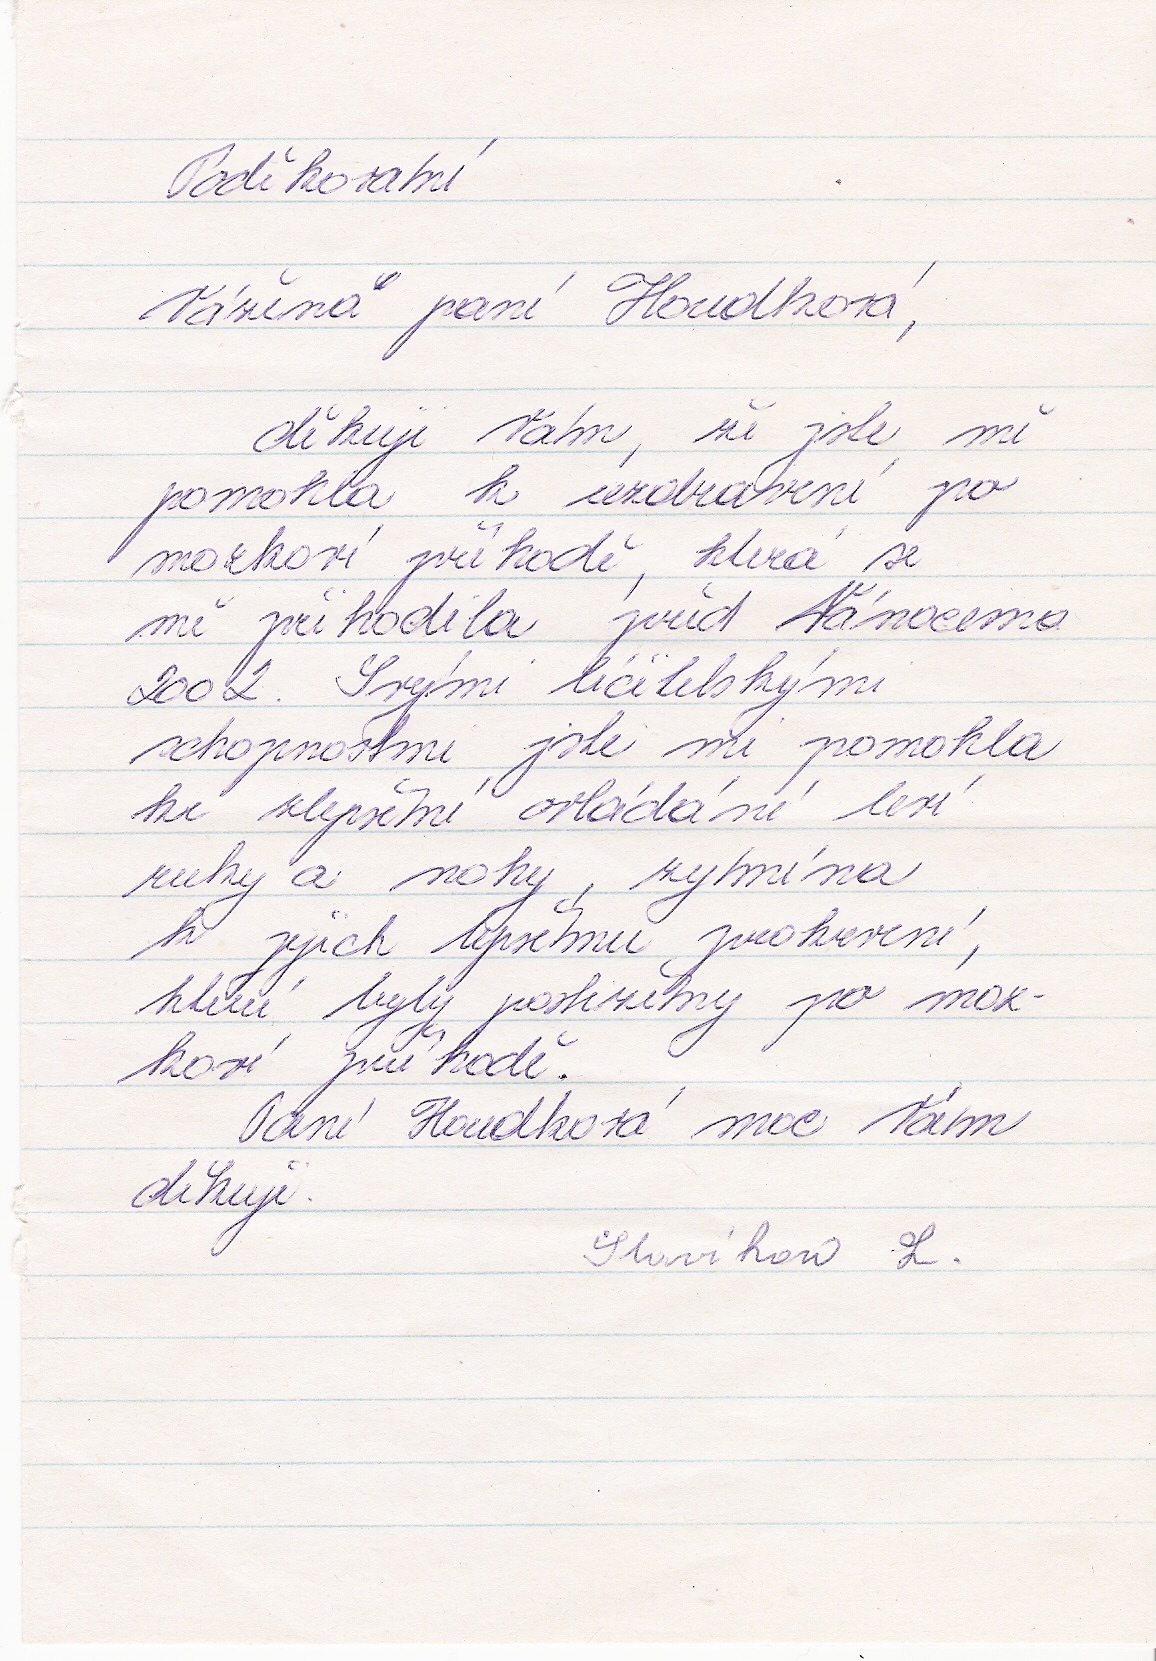 Poděkování
Vážená paní Houdková,
děkuji Vám, že jste mě
pomohla k uzdravení po
mozkové příhodě, která se
mě přihodila před Vánocema
2002. Svými léčitelskými
schopnostmi jste mi pomohla
ke zlepšení ovládání levé
ruky a nohy, zejména
k jejich lepšímu prokrvení,
které byly postiženy po moz-
kové příhodě.
Paní Houdková moc Vám
děkuji.
Slavíková L.